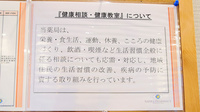 『健康相談・健康教室』について
当薬局は、
栄養・食生活、運動、休養、こころの健康
づくり、飲酒・喫煙など生活習慣全般に
係る相談についても応需・対応し、地域
住民の生活習慣の改善、疾病の予防に
資する取り組みを行っています。